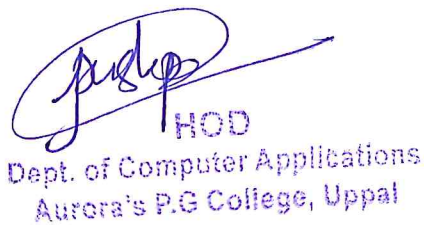 HOD
Dept. of Computer Applications
Aurora's P.G College, Uppal